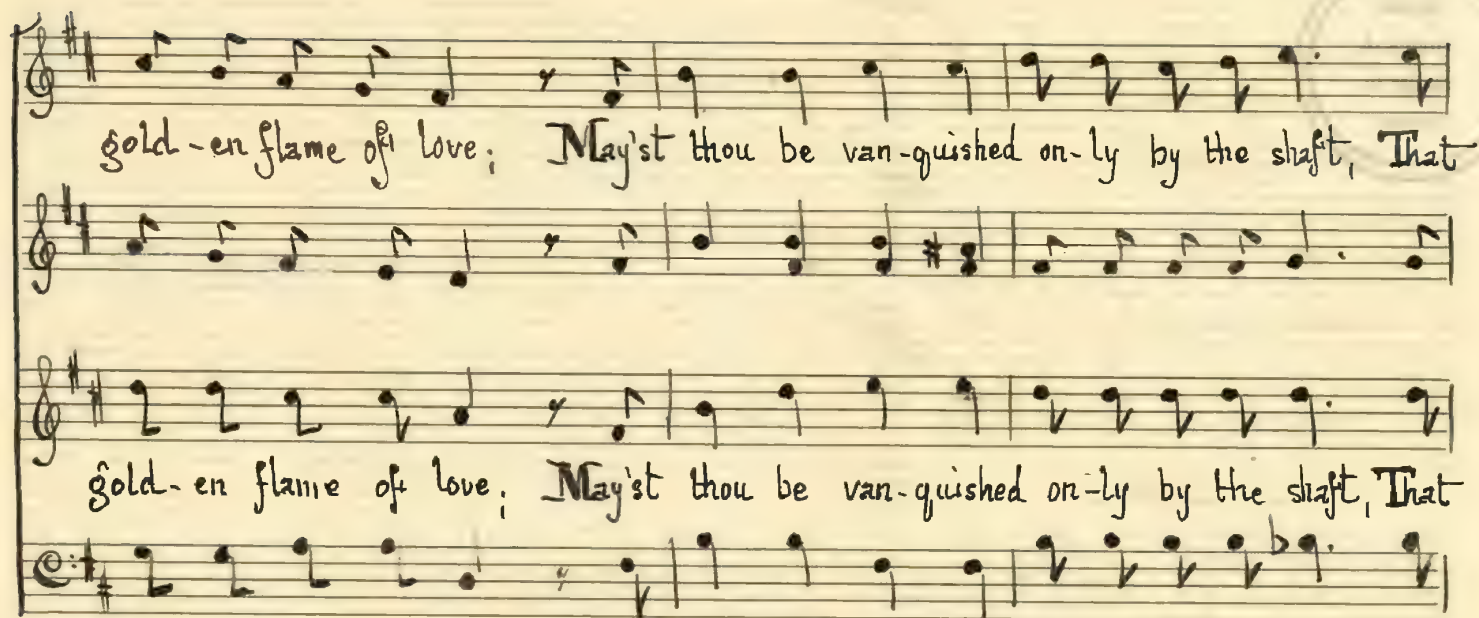 gold-en flame of love; May'st thou be van-quished on-ly by the shaft, That
gold-en flame of love; May'st thou be van-quished on-ly by the shaft, That